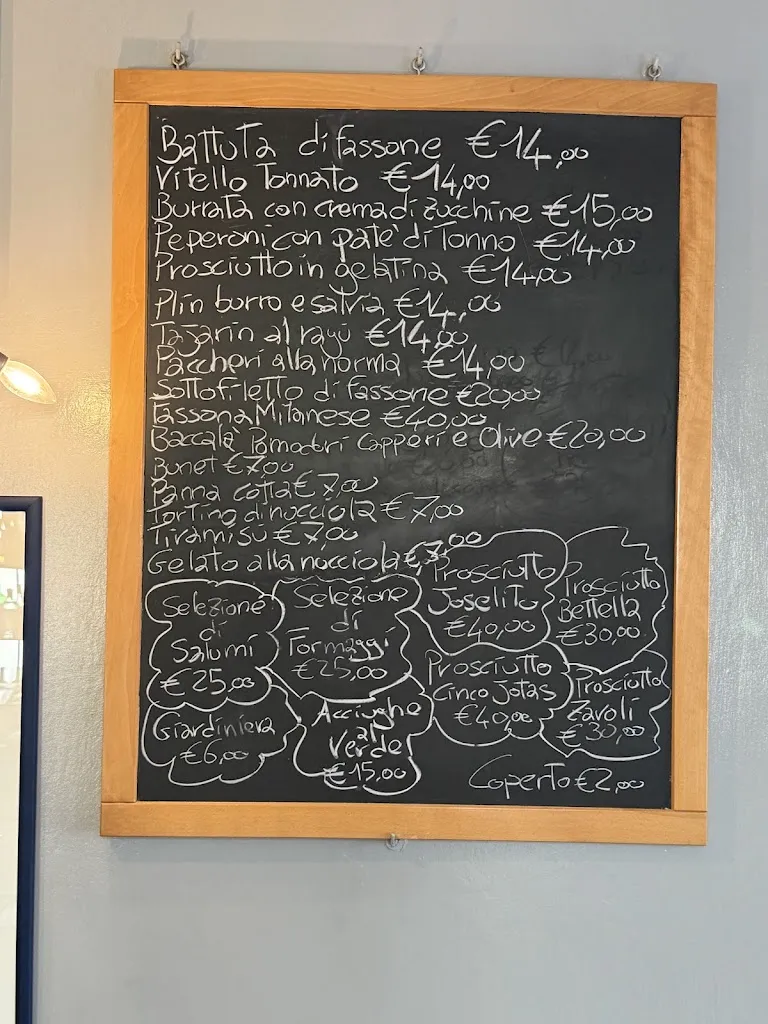 Battuta di fassone €14,00
Vitello Tonnato €14,00
Burrata con crema di zucchine €15,00
Peperoni con patè di Tonno €14,00
Prosciutto in gelatina €14,00
Plin burro e salvia €14,00
Tajarin al ragù €14,00
Paccheri alla norma €14,00
Sottofiletto di fassone €20,00
Fassona Milanese €40,00
Baccalà Pomodori Capperi e Olive €20,00
Bunet €7,00
Panna cotta €7,00
Tortino di nocciola €7,00
Tiramisù €7,00
Gelato alla nocciola €7,00
Selezione
di
Salumi
€25,00
Selezione
di
Formaggi
€25,00
Prosciutto
Joselito
€40,00
Prosciutto
Bettella
€30,00
Giardiniera
€6,00
Acciughe
al
Verde
€15,00
Prosciutto
Cinco Jotas
€40,00
Prosciutto
Zavoli
€30,00
Coperto €2,00